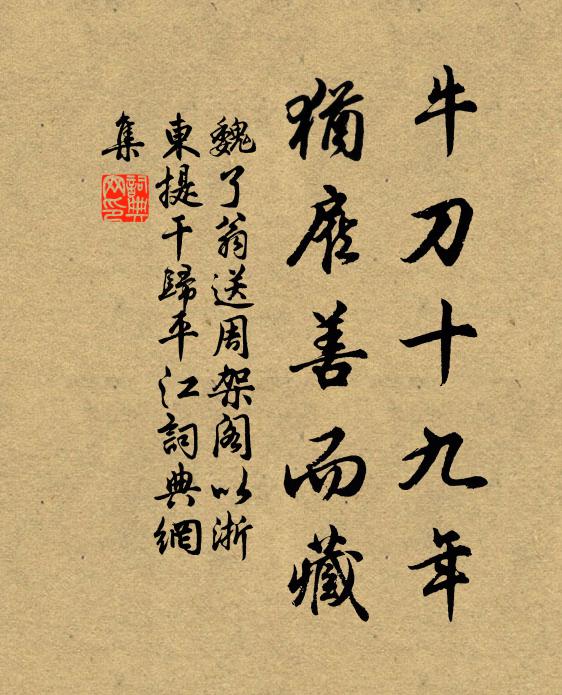 牛刀十九年
猶善而藏
魏了翁送周架閣以浙
東提干歸平江詞典網
集
詞典
网印